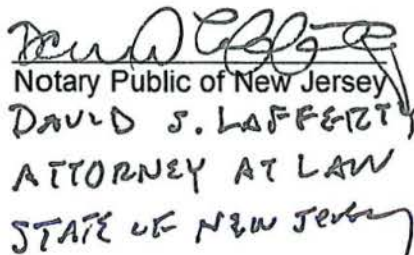 Notary Public of New Jersey
DAVID S. LAFFERTY
ATTORNEY AT LAW
STATE OF NEW JERSEY